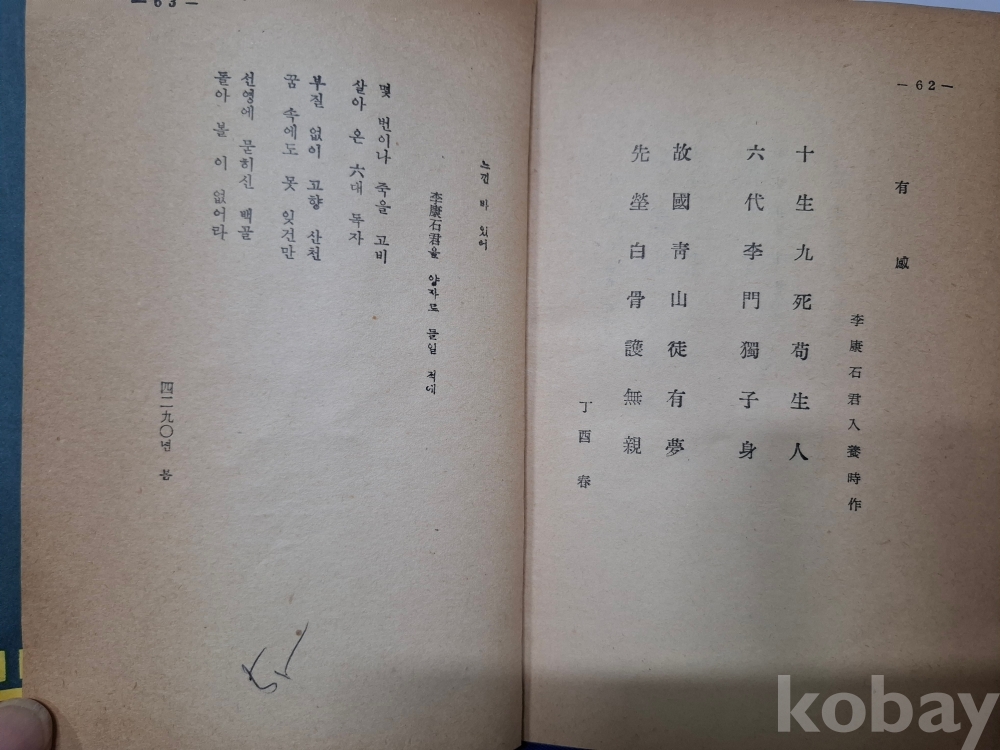 — 62 —
有感
李康石君入養時作
十生九死苟生人
六代李門獨子身
故國靑山徒有夢
先塋白骨護無親
丁酉春
— 63 —
느낀 바 있어
李康石君을 양자로 들일 적에
몇 번이나 죽을 고비
살아 온 六대 독자
부질 없이 고향 산천
꿈 속에도 못 잊건만
선영에 묻히신 백골
돌아 볼 이 없어라
四二九〇년 봄
kobay